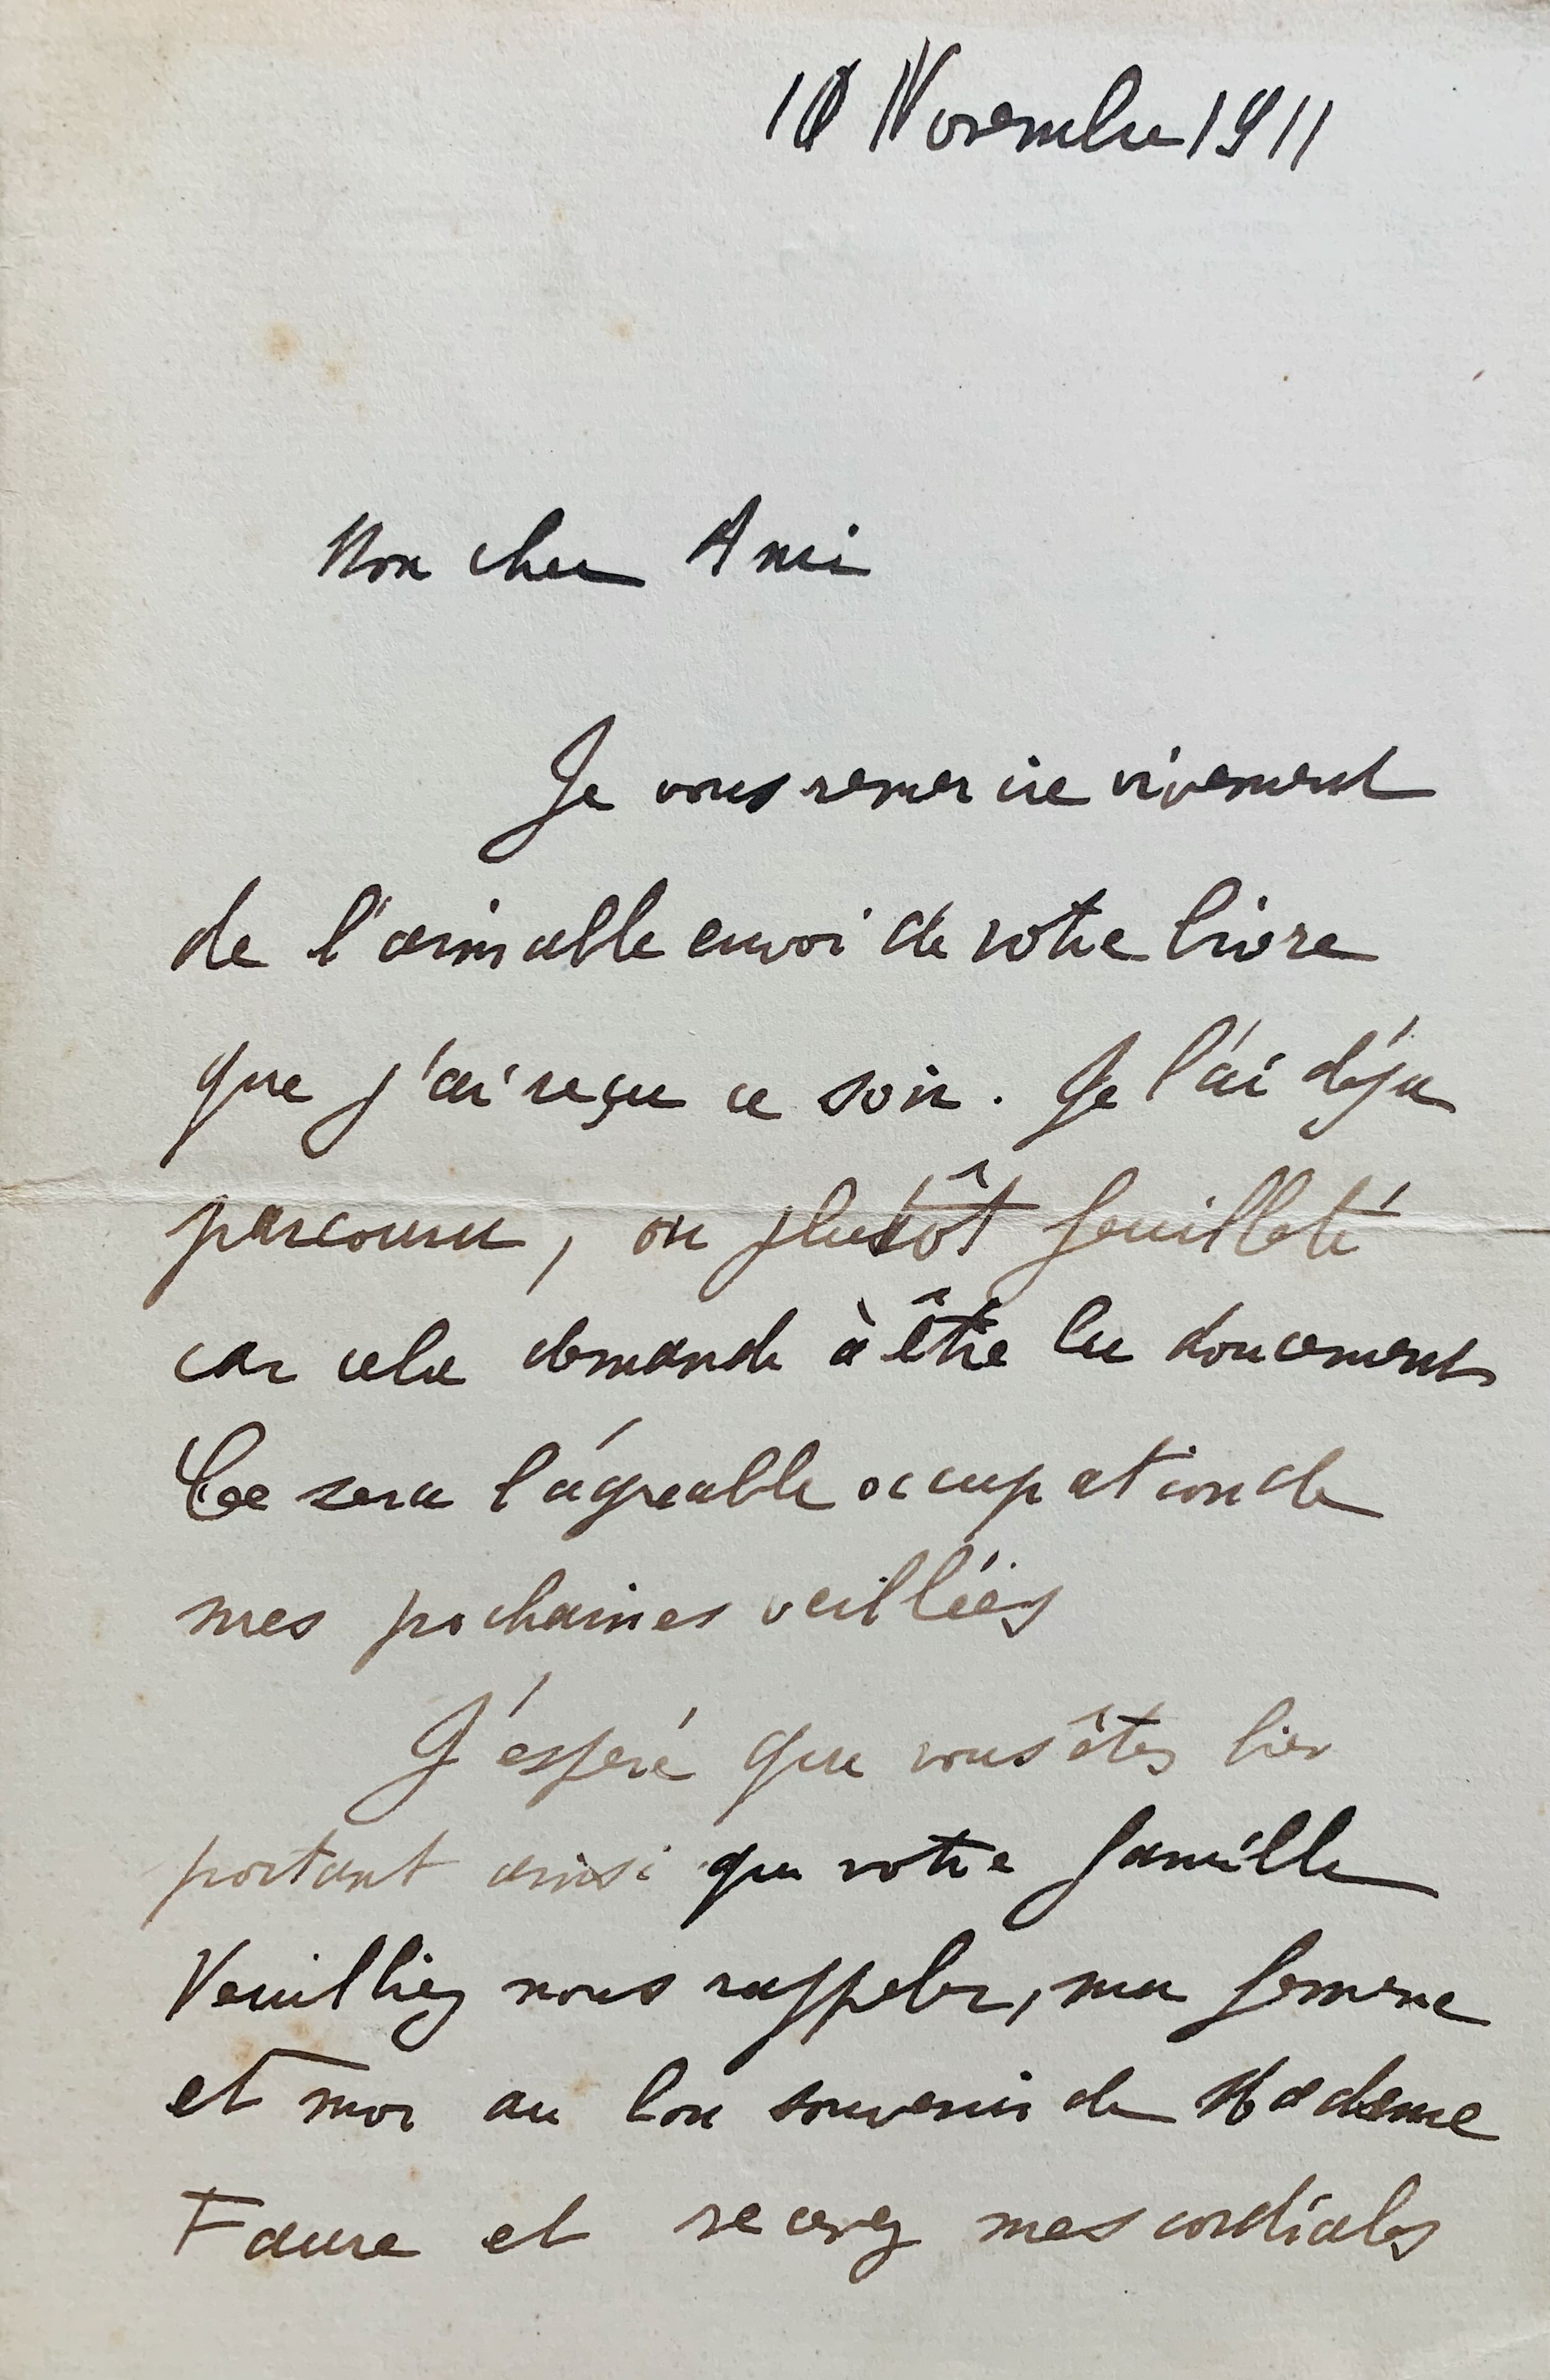 10 Novembre 1911
Mon cher Ami
Je vous remercie vivement
de l'aimable envoi de votre livre
que j'ai reçu ce soir. Je l'ai déja
parcouru, ou plutôt feuilleté
car cela demande à être lu doucement
Ce sera l'agréable occupation de
mes prochaines veillées
J'espére que vous êtes bien
portant ainsi que votre famille
Veuilliez nous rappeler, ma femme
et moi au bon souvenir de Madame
Faure et recevez mes cordiales